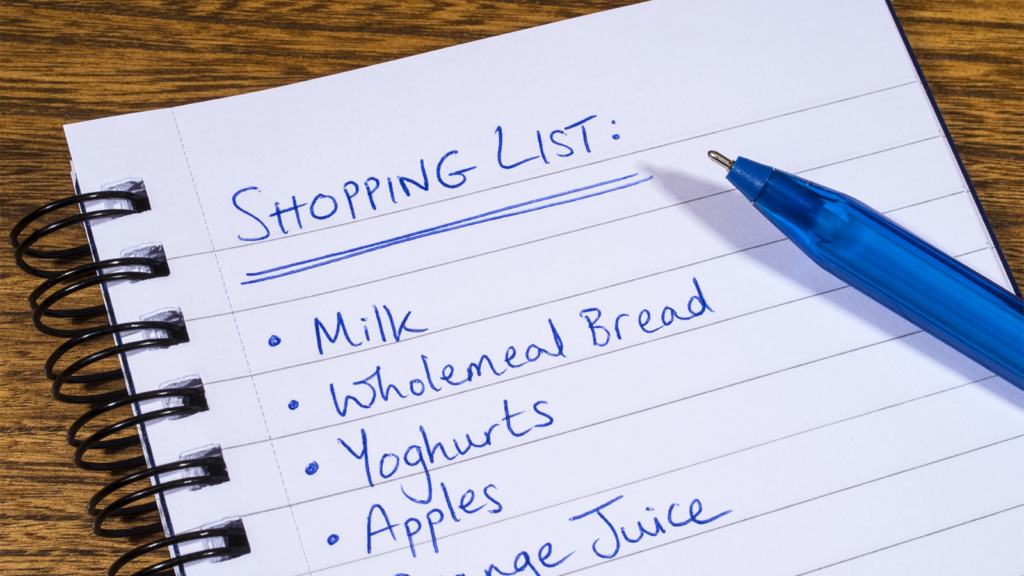 SHOPPING LIST:
• Milk
• Wholemeal Bread
• Yoghurts
• Apples
Orange Juice